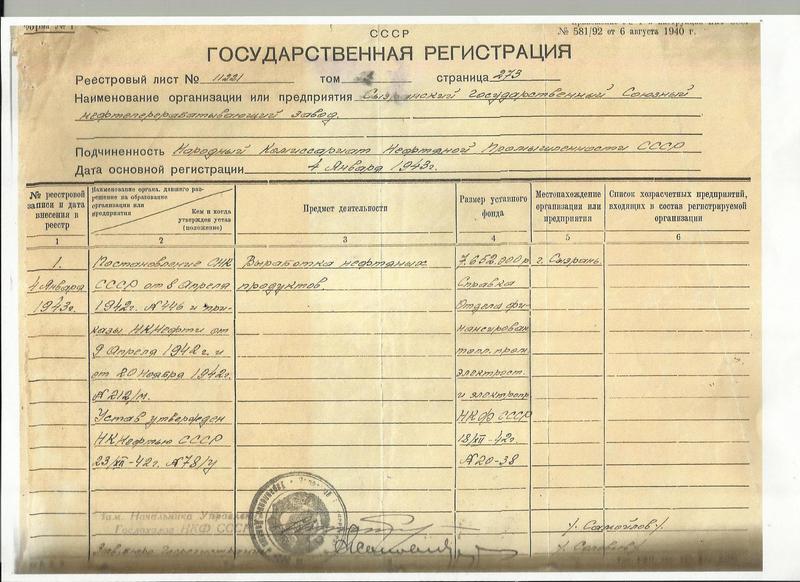 Форма № 1
СССР
№ 581/92 от 6 августа 1940 г.
ГОСУДАРСТВЕННАЯ РЕГИСТРАЦИЯ
Реестровый лист № 11221 том 2 страница 273
Наименование организации или предприятия Сызранский Государственный Союзный
нефтеперерабатывающий завод.
Подчиненность Народный Комиссариат Нефтяной Промышленности СССР
Дата основной регистрации 4 Января 1943г.
№ реестровой записи и дата внесения в реестр
Наименование органа, давшего разрешение на образование организации или предприятия
Кем и когда утвержден устав (положение)
Предмет деятельности
Размер уставного фонда
Местонахождение организации или предприятия
Список хозрасчетных предприятий, входящих в состав регистрируемой организации
1 2 3 4 5 6
1. Постановление СНК Выработка нефтяных 7.652.000 р г. Сызрань.
4 Января СССР от 8 Апреля продуктов Справка
1943г. 1942г. № 446 и при- Отдела фи-
казы НКНефти от нансирован
9 Апреля 1942г. и топл. пром.
от 20 Ноября 1942г. электрост.
№ 212/м. и электропр
Устав утвержден НКФ СССР
НКНефтью СССР 18/XII-42г.
23/XII-42г. № 78/у № 20-38
Зам. Начальника Управлен
Госдоходов НКФ СССР
/. Самойлов /.